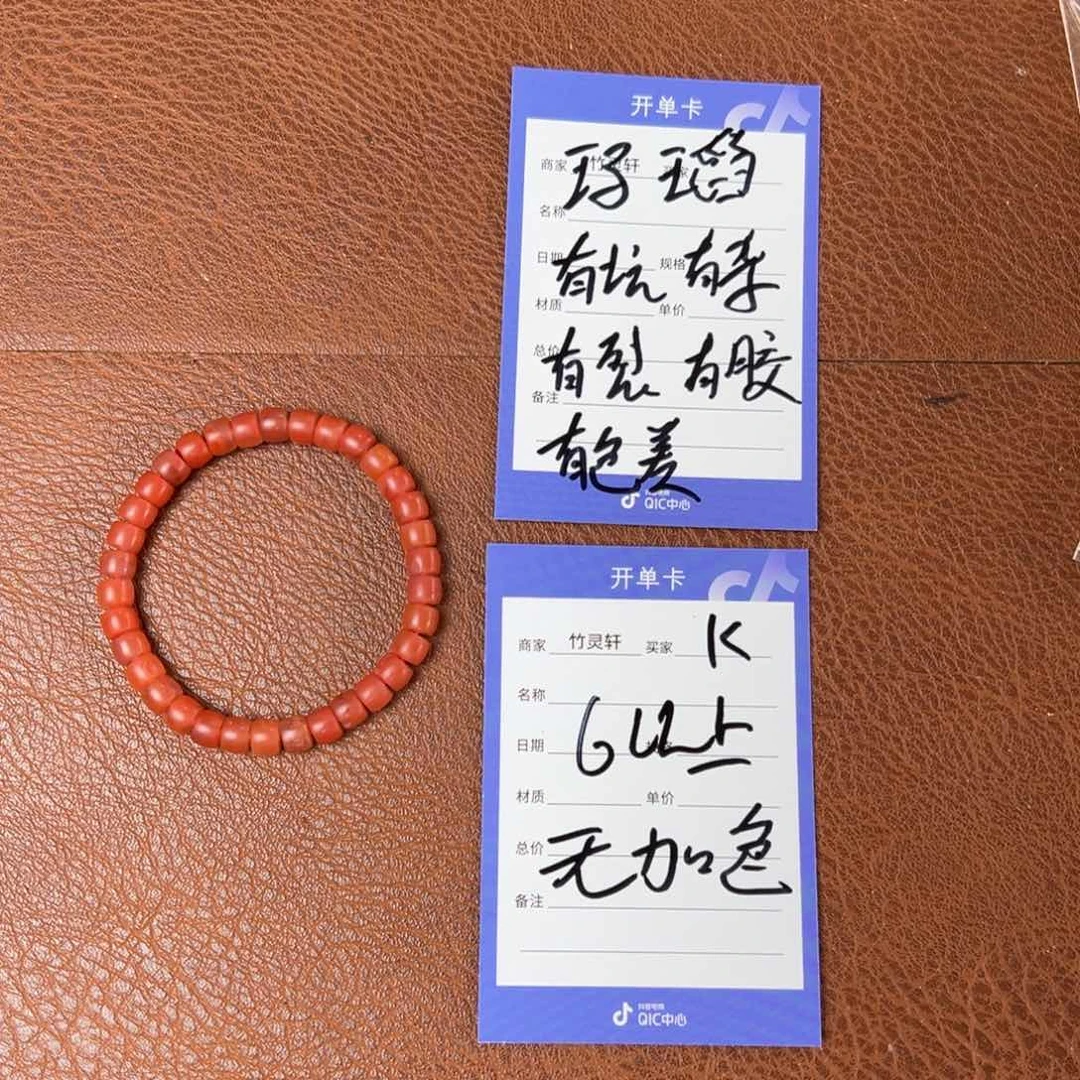 开单卡
商家 竹灵轩
名称
日期 规格
材质 单价
总价
备注
玛瑙
有坑 有棉
有裂 有胶
有色差
QIC中心
开单卡
商家 竹灵轩 买家 K
名称
日期
材质 单价
总价 无加色
备注
抖音电商
QIC中心